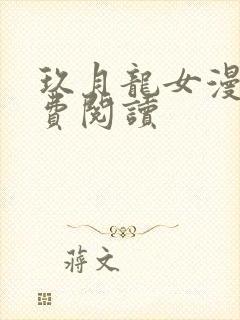 玖月龍女漫
費閱讀
蔣文